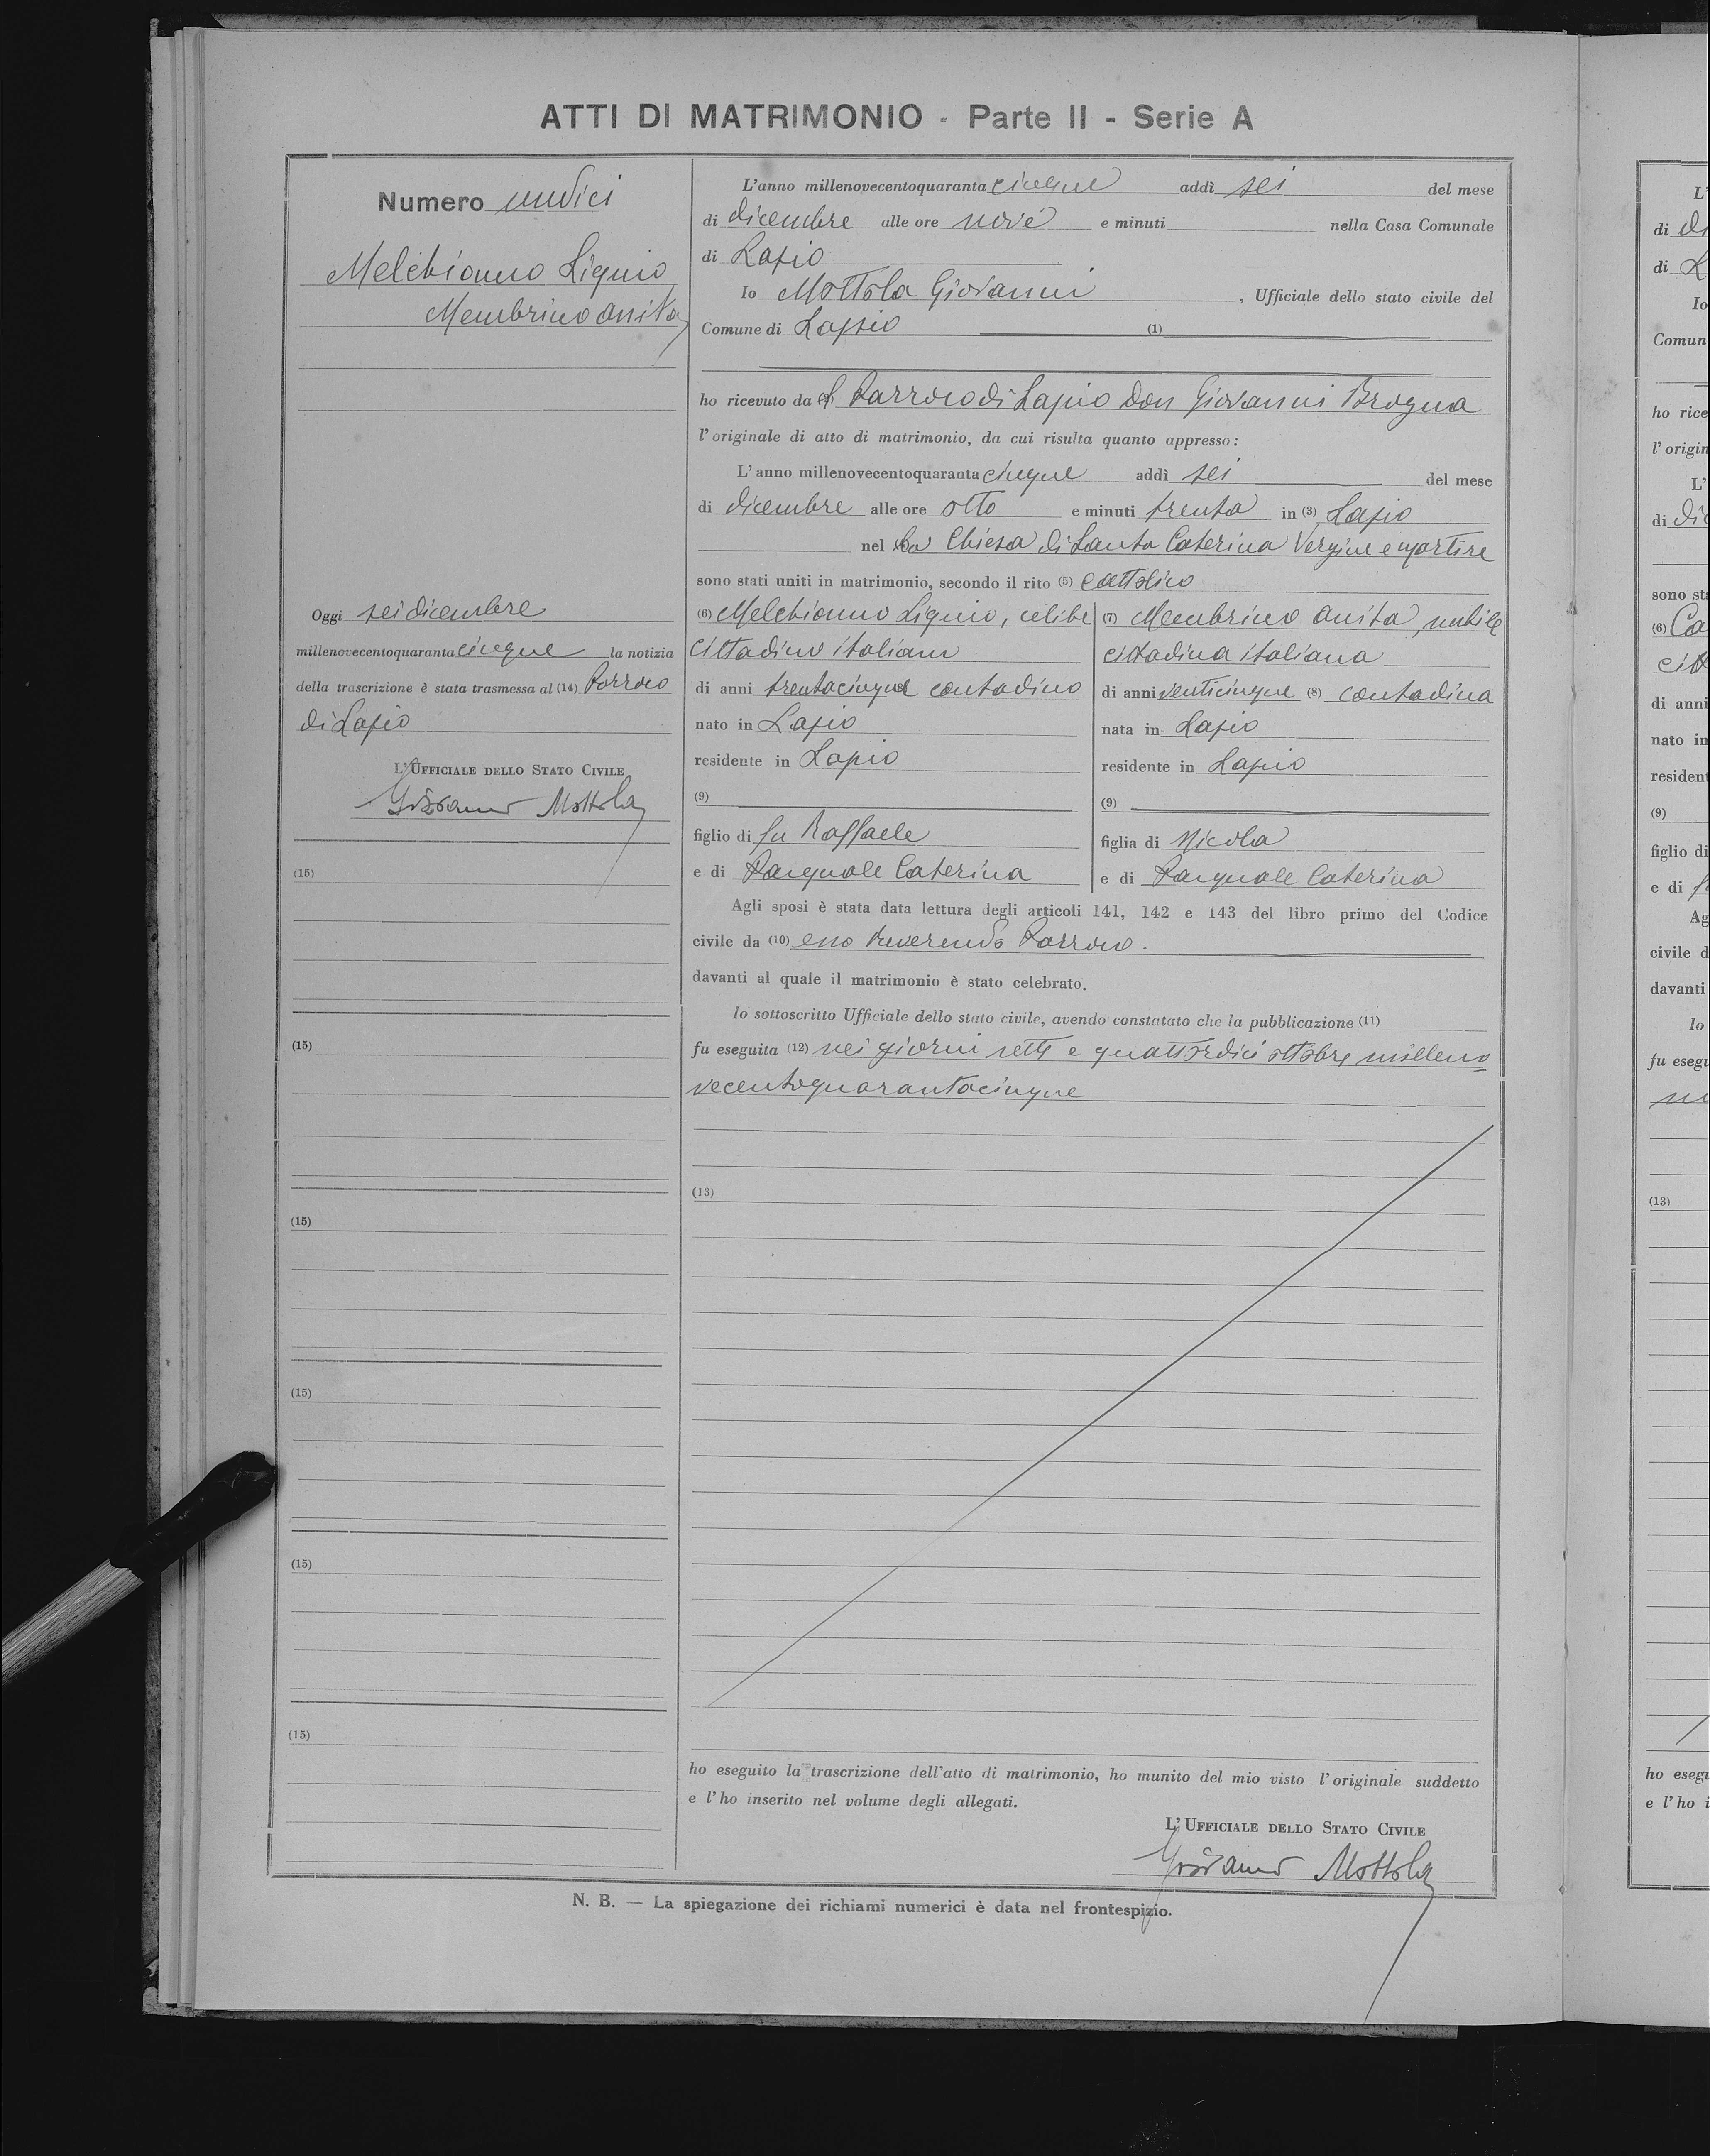 ATTI DI MATRIMONIO - Parte II - Serie A
Numero undici
Melchionno Liguio
Membrino Anita
Oggi sei dicembre
millenovecentoquaranta cinque la notizia
della trascrizione è stata trasmessa al (14) Parroco
di Lapio
L'UFFICIALE DELLO STATO CIVILE
Giovanni Mottola
(15)
(15)
(15)
(15)
(15)
(15)
L'anno millenovecentoquaranta cinque addì sei del mese
di dicembre alle ore nove e minuti nella Casa Comunale
di Lapio
Io Mottola Giovanni , Ufficiale dello stato civile del
Comune di Lapio (1)
ho ricevuto da l Parroco di Lapio Don Giovanni Brogna
l'originale di atto di matrimonio, da cui risulta quanto appresso:
L'anno millenovecentoquaranta cinque addì sei del mese
di dicembre alle ore otto e minuti trenta in (3) Lapio
nel la Chiesa di Santa Caterina Vergine e martire
sono stati uniti in matrimonio, secondo il rito (5) cattolico
(6) Melchionno Liguio, celibe
cittadino italiano
di anni trentacinque contadino
nato in Lapio
residente in Lapio
(9)
figlio di fu Raffaele
e di Pasquale Caterina
(7) Membrino Anita, nubile
cittadina italiana
di anni venticinque (8) contadina
nata in Lapio
residente in Lapio
(9)
figlia di Nicola
e di Pasquale Caterina
Agli sposi è stata data lettura degli articoli 141, 142 e 143 del libro primo del Codice
civile da (10) esso Reverendo Parroco.
davanti al quale il matrimonio è stato celebrato.
Io sottoscritto Ufficiale dello stato civile, avendo constatato che la pubblicazione (11)
fu eseguita (12) nei giorni sette e quattordici ottobre milleno
vecentoquarantacinque
(13)
ho eseguito la trascrizione dell'atto di matrimonio, ho munito del mio visto l'originale suddetto
e l'ho inserito nel volume degli allegati.
L'UFFICIALE DELLO STATO CIVILE
Giovanni Mottola
N. B. — La spiegazione dei richiami numerici è data nel frontespizio.
L'
di di
di L
Io
Comun
ho rice
l'origin
L'
di dic
sono sta
(6) Ca
citt
di anni
nato in
resident
(9)
figlio di
e di
Ag
civile d
davanti
Io
fu esegu
(13)
ho esegu
e l'ho i